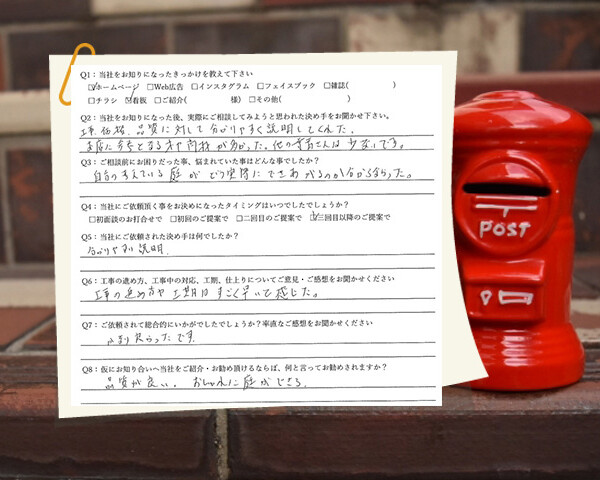 Q1：当社をお知りになったきっかけを教えて下さい
☑ホームページ □Web広告 □インスタグラム □フェイスブック □雑誌( )
□チラシ ☑看板 □ご紹介( 様) □その他( )
Q2：当社をお知りになった後、実際にご相談してみようと思われた決め手をお聞かせ下さい。
工事、価格、品質に対して分かりやすく説明してくれた。
お店に参考となる 材が分った。他の業者さんは少ないです。
Q3：ご相談前にお困りだった事、悩まれていた事はどんな事でしたか？
自分の考えている庭がどう実際にできあがるのか分からなった。
Q4：当社にご依頼頂く事をお決めになったタイミングはいつでしたでしょうか？
□初面談のお打合せで □初回のご提案で □二回目のご提案で ☑三回目以降のご提案で
Q5：当社にご依頼された決め手は何でしたか？
分かりやすい説明
Q6：工事の進め方、工事中の対応、工期、仕上りについてご意見・ご感想をお聞かせください
工事の進め方や工期はすごく早いて感じた。
Q7：ご依頼されて総合的にいかがでしたでしょうか？率直なご感想をお聞かせください
良かったです。
Q8：仮にお知り合いへ当社をご紹介・お勧め頂けるならば、何と言ってお勧めされますか？
品質が良い。おしゃれに庭ができる。
〒
POST